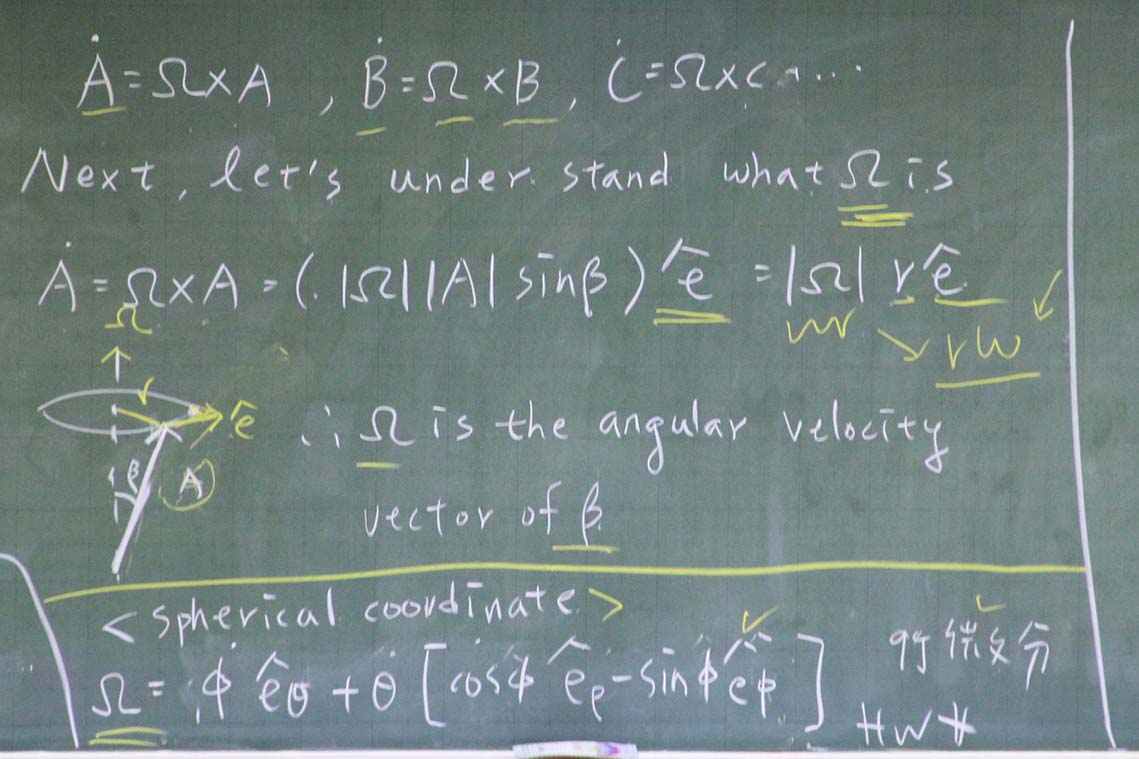 Ȧ = Ω×A , Ḃ = Ω×B, Ċ = Ω×C ....
Next, let's under stand what Ω is
Ȧ = Ω×A = (|Ω||A| sinβ) ê = |Ω| r ê
rω
Ω
ê
β
A
∴ Ω is the angular velocity
vector of β
<spherical coordinate>
Ω = ϕ̇ êθ + θ̇ [cosϕ êρ - sinϕ êϕ]
微分
HW